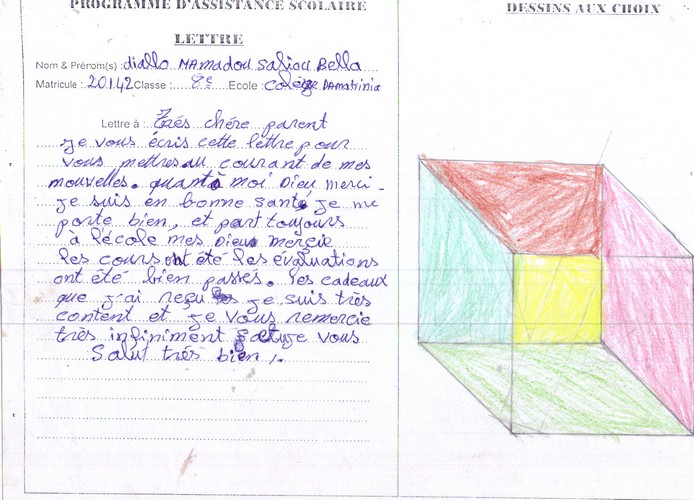 PROGRAMME D'ASSISTANCE SCOLAIRE
DESSINS AUX CHOIX
LETTRE
Nom & Prénom(s) : diallo MAmadou Saliou Bella
Matricule : 20142 Classe : 8e Ecole : Colège DAmatrinia
Lettre à : Trés chére parent
je vous écris cette lettre pour
vous mettres au courant de mes
nouvelles. quant à moi Dieu merci.
je suis en bonne santé je me
porte bien, et part toujours
à l'école mes Dieu merçie
les cours ont été les évaluations
ont été bien passés. les cadeaux
que j'ai reçu je suis très
content et je vous remercie
très infiniment je vous
Salut trés bien,.